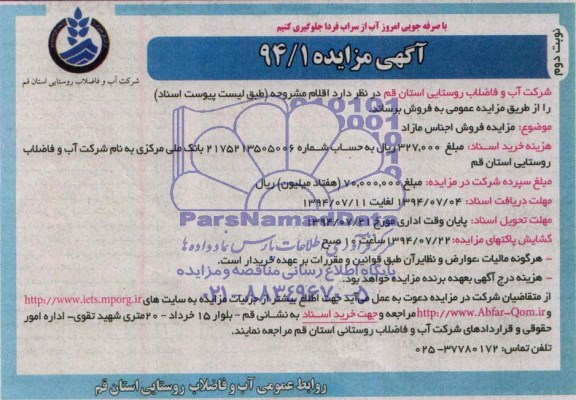 با صرفه جویی امروز آب از سراب فردا جلوگیری کنیم
نوبت دوم
آگهی مزایده ۹۴/۱
شرکت آب و فاضلاب روستایی استان قم
شرکت آب و فاضلاب روستایی استان قم در نظر دارد اقلام مشروحه (طبق لیست پیوست اسناد)
را از طریق مزایده عمومی به فروش برساند.
موضوع: مزایده فروش اجناس مازاد
هزینه خرید اسناد: مبلغ ۳۲۷,۰۰۰ ریال به حساب شماره ۲۱۷۵۲۱۳۵۰۵۰۰۶ بانک ملی مرکزی به نام شرکت آب و فاضلاب
روستایی استان قم
مبلغ سپرده شرکت در مزایده: مبلغ ۷۰,۰۰۰,۰۰۰ (هفتاد میلیون) ریال
مهلت دریافت اسناد: ۱۳۹۴/۰۷/۰۴ لغایت ۱۳۹۴/۰۷/۱۱
مهلت تحویل اسناد: پایان وقت اداری مورخ ۱۳۹۴/۰۷/۲۱
گشایش پاکتهای مزایده: ۱۳۹۴/۰۷/۲۲ ساعت ۱۰ صبح
- هرگونه مالیات ،عوارض و نظایرآن طبق قوانین و مقررات بر عهده خریدار است.
- هزینه درج آگهی بعهده برنده مزایده خواهد بود.
از متقاضیان شرکت در مزایده دعوت به عمل می آید جهت اطلاع بیشتر از جزئیات مزایده به سایت های http://www.iets.mporg.ir
و http://www.Abfar-Qom.ir مراجعه و جهت خرید اسناد به نشانی قم - بلوار ۱۵ خرداد - ۲۰متری شهید تقوی- اداره امور
حقوقی و قراردادهای شرکت آب و فاضلاب روستائی استان قم مراجعه نمایند.
تلفن تماس: ۳۷۷۸۰۱۷۲-۰۲۵
روابط عمومی آب و فاضلاب روستایی استان قم
ParsNamadData
مرکز فرآوری اطلاعات پارس نماد داده ها
پایگاه اطلاع رسانی مناقصه و مزایده
۰۲۱-۸۸۳۴۹۶۷۰-۵